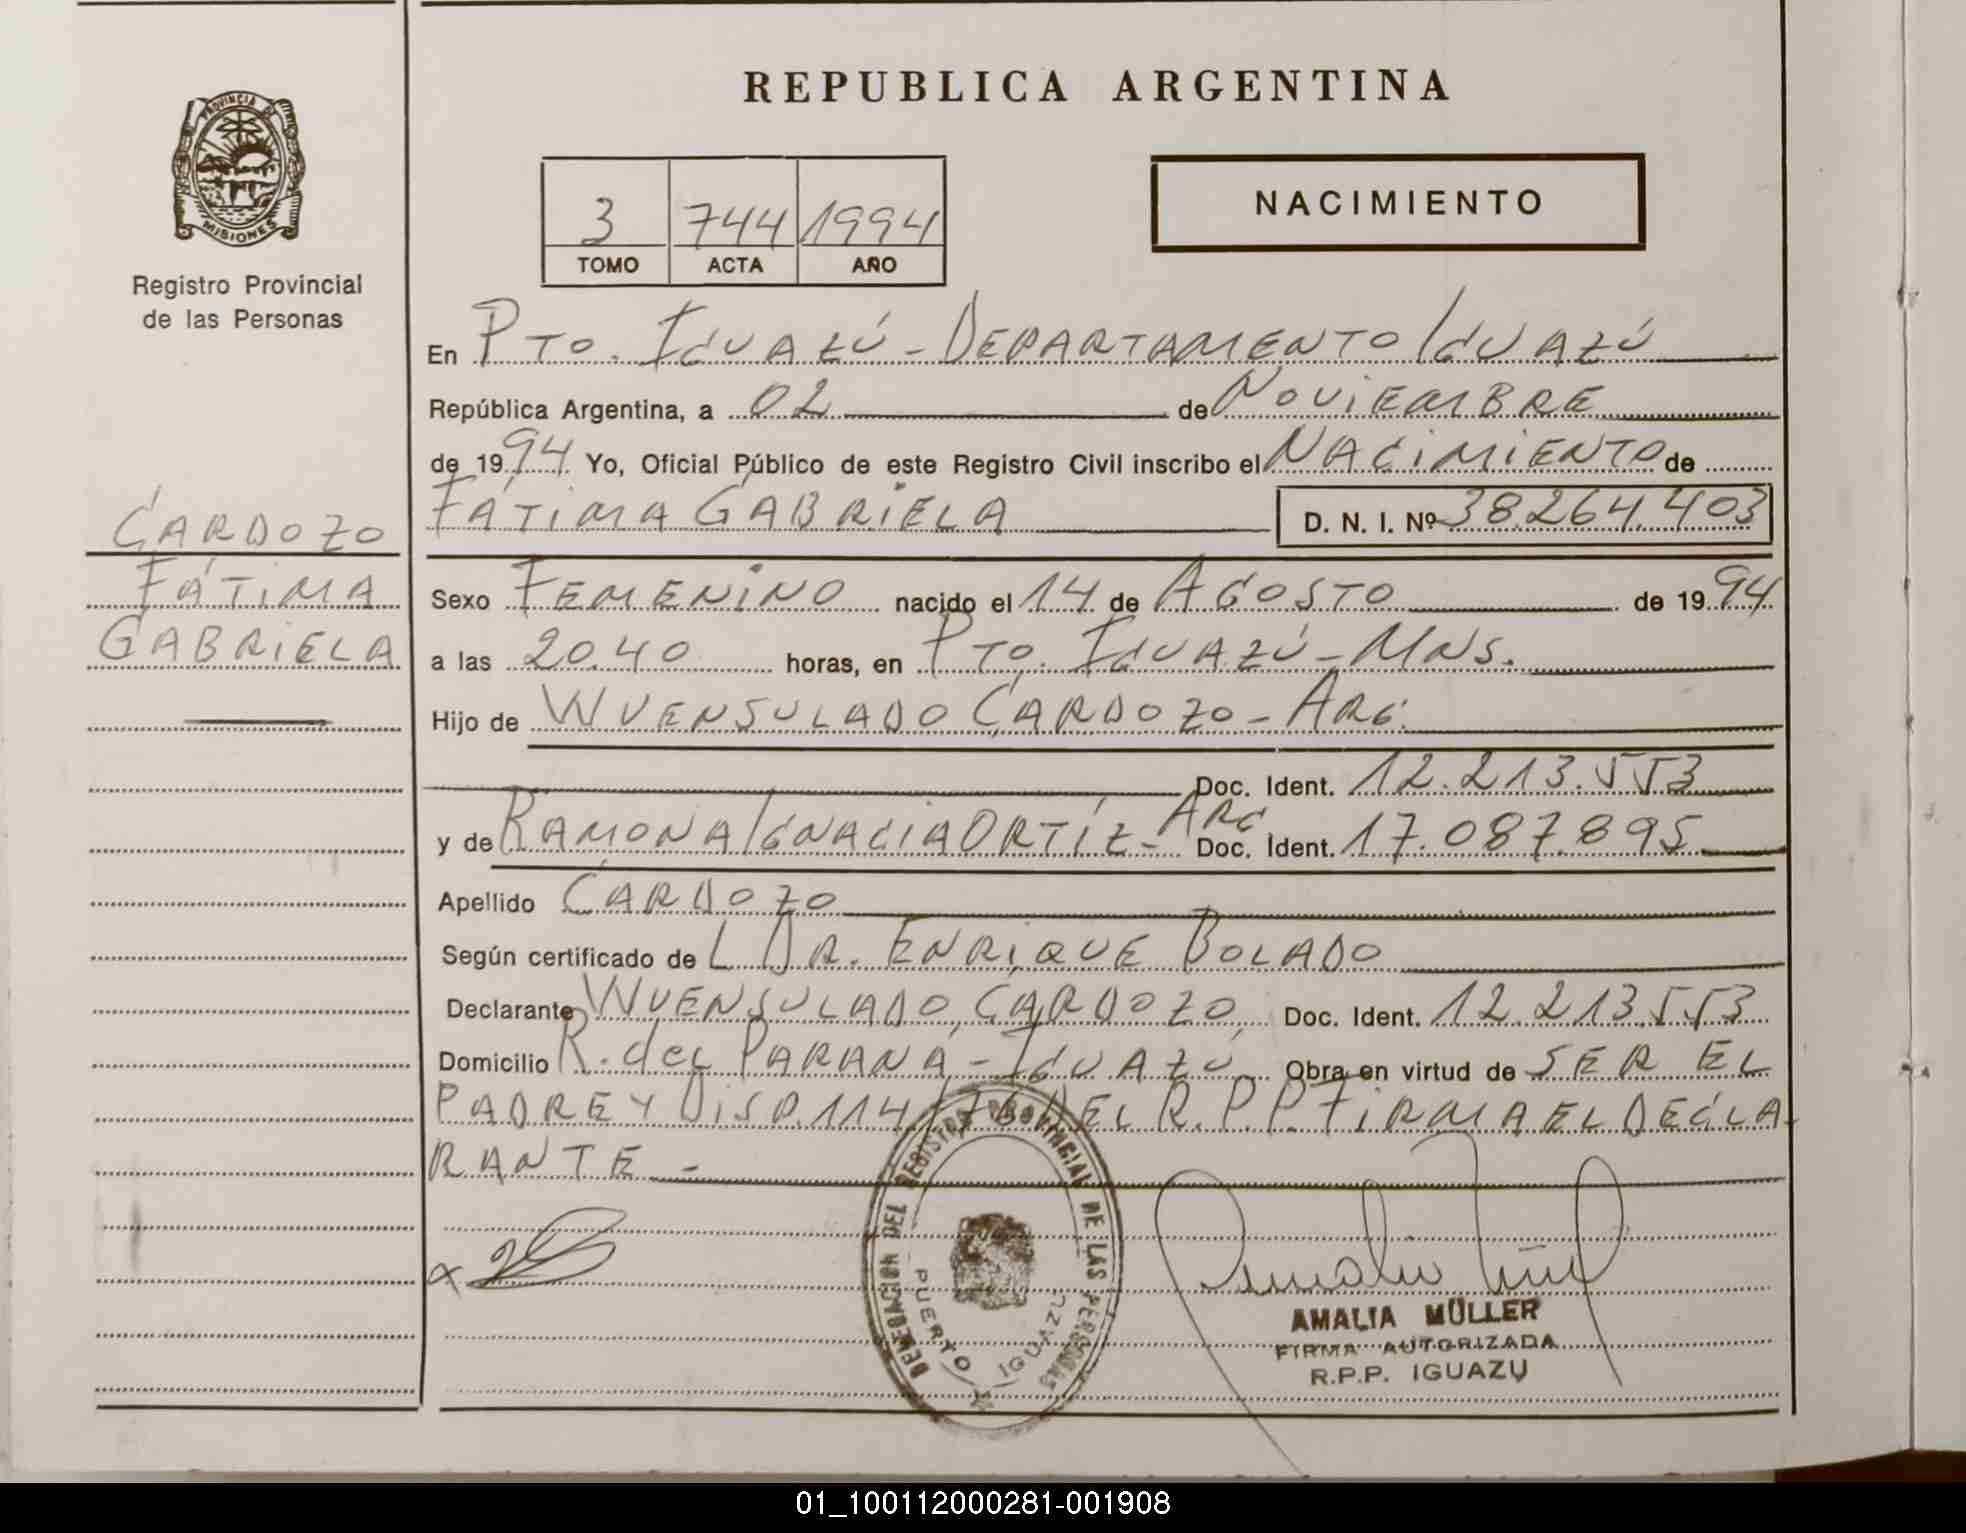 REPUBLICA ARGENTINA
PROVINCIA DE
MISIONES
Registro Provincial
de las Personas
3 744 1994
TOMO ACTA AÑO
NACIMIENTO
En PTO. IGUAZÚ - DEPARTAMENTO IGUAZÚ
República Argentina, a 02 de NOVIEMBRE
de 1994 Yo, Oficial Público de este Registro Civil inscribo el NACIMIENTO de
FÁTIMA GABRIELA D. N. I. Nº 38.264.403
CARDOZO
FÁTIMA
GABRIELA
Sexo FEMENINO nacido el 14 de AGOSTO de 1994
a las 20.40 horas, en PTO. IGUAZÚ - MNS.
Hijo de WUENSULADO CARDOZO - ARG.
Doc. Ident. 12.213.553
y de RAMONA IGNACIA ORTÍZ - ARG Doc. Ident. 17.087.895
Apellido CARDOZO
Según certificado de L DR. ENRIQUE BOLADO
Declarante WUENSULADO CARDOZO Doc. Ident. 12.213.553
Domicilio R. del PARANÁ - IGUAZÚ Obra en virtud de SER EL
PADRE Y DISP. 114/76 DEL R.P.P. FIRMA EL DECLA-
RANTE -
DELEGACION DEL REGISTRO PROVINCIAL DE LAS PERSONAS
PUERTO IGUAZU
AMALIA MÜLLER
FIRMA AUTORIZADA
R.P.P. IGUAZU
01_100112000281-001908